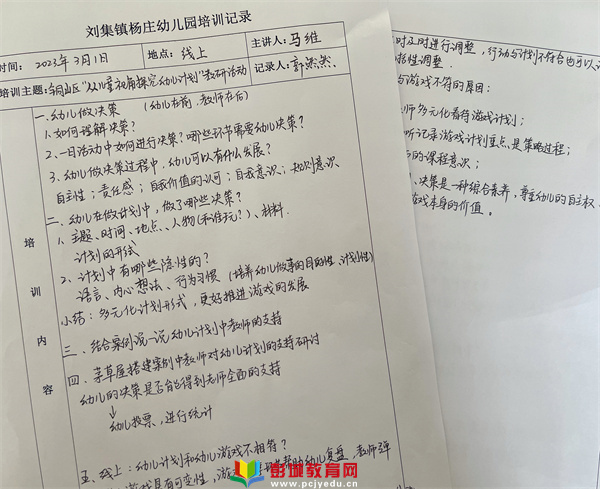 刘集镇杨庄幼儿园培训记录
时间: 2023年3月1日
地点: 线上
主讲人: 马维
培训主题: 铜山区"从儿童视角探究幼儿计划"教研活动
记录人: 郭然然
培训内容
一、幼儿做决策 (幼儿在前,教师在后)
1、如何理解决策?
2、一日活动中如何进行决策?哪些环节需要幼儿决策?
3、幼儿做决策过程中,幼儿可以有什么发展?
自主性;责任感;自我价值的认可;自我意识;规则意识
二、幼儿在做计划中,做了哪些决策?
1、主题、时间、地点、人物(和谁玩?)、材料
计划的形式
2、计划中有哪些隐性的?
语言、内心想法、行为习惯(培养幼儿做事的目的性、计划性)
小结:多元化计划形式,更好推进游戏的发展
三、结合案例说一说幼儿计划中教师的支持
四、茅草屋搭建案例中教师对幼儿计划的支持研讨
幼儿的决策是否能得到老师全面的支持
↓
幼儿投票,进行统计
五、线上:幼儿计划和幼儿游戏不相符?
游戏具有可变性,游
帮助幼儿复盘,老师
时及时进行调整,行动与计划不符合也可以
性调整.
与游戏不符的原因:
师多元化看待游戏计划;
听记录游戏计划重点是策略过程;
的课程意识;
、决策是一种综合素养,尊重幼儿的自主权
游戏本身的价值。
彭城教育网
www.pcjyedu.cn